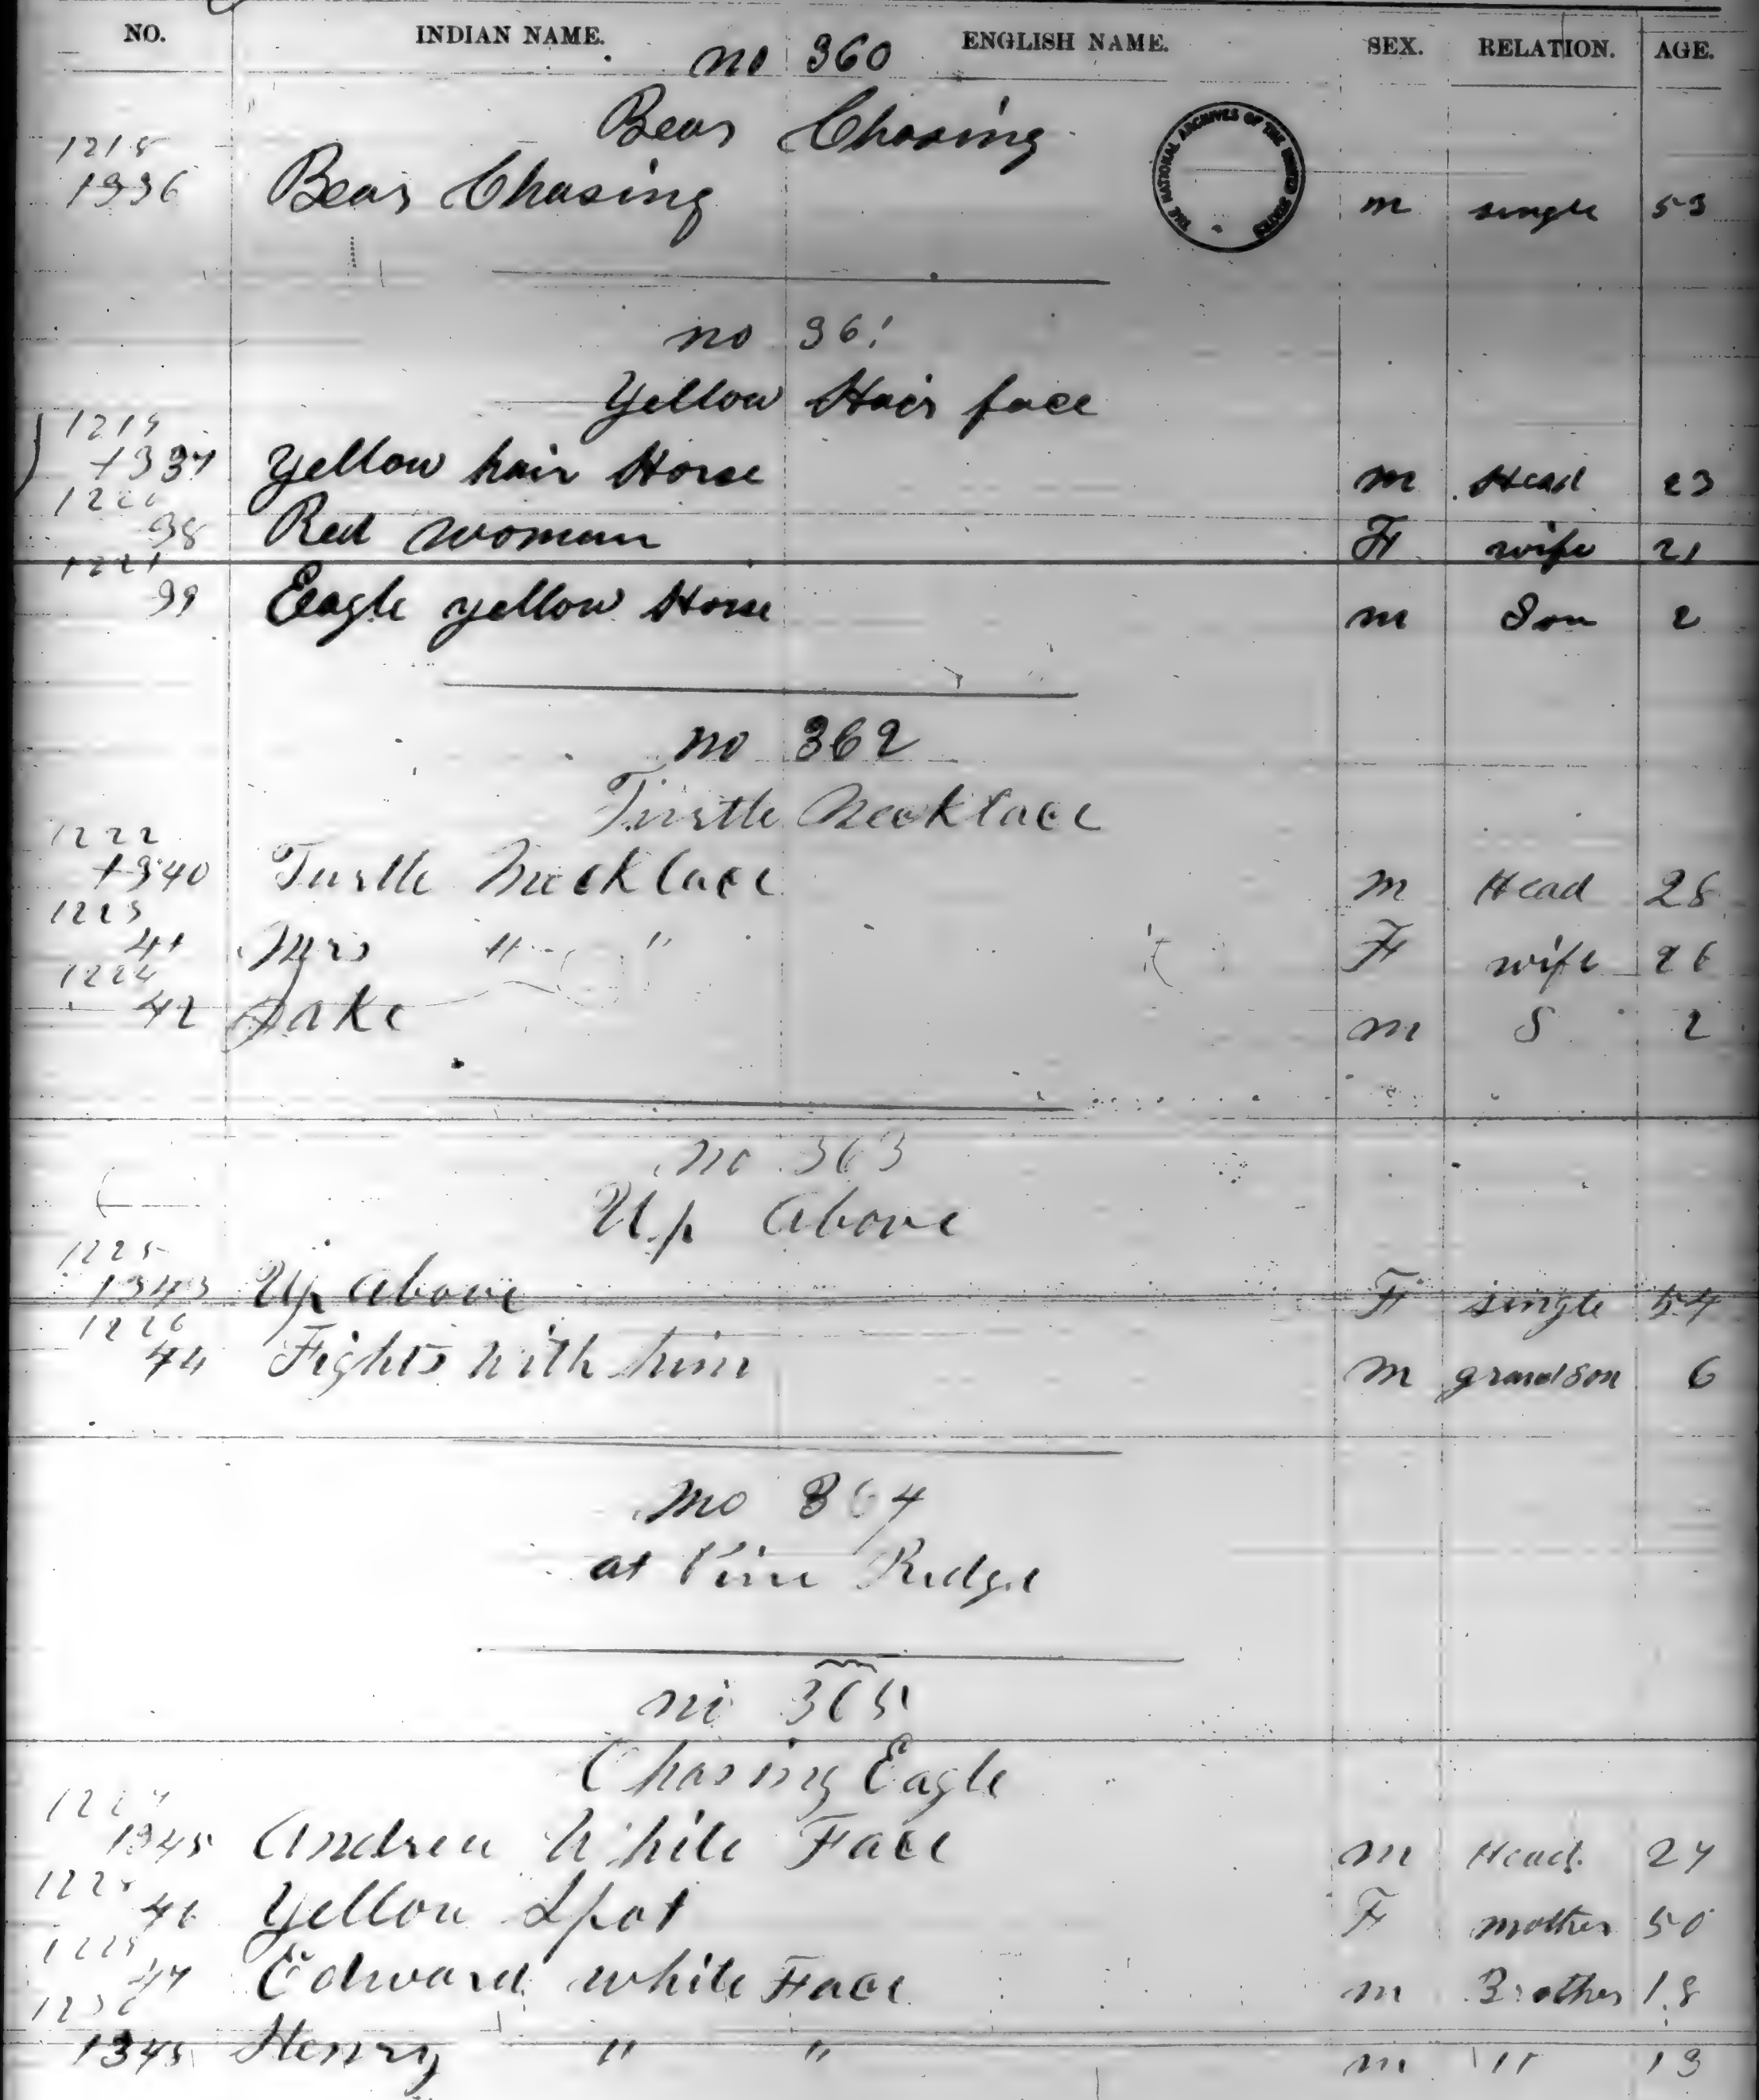 NO. INDIAN NAME. ENGLISH NAME. SEX. RELATION. AGE.
no 360
Bear Chasing
1218
1336 Bear Chasing m single 53
THE NATIONAL ARCHIVES OF THE UNITED STATES
no 361
Yellow Hair face
1219
1337 Yellow hair Horse m Head 23
1220
38 Red woman F wife 21
1221
39 Eagle yellow Horse m Son 2
no 362
Turtle Necklace
1222
1340 Turtle Necklace m Head 28
1223
41 Mrs " " F wife 26
1224
42 Jake m S 2
no 363
Up Above
1225
1343 Up Above F single 54
1226
44 Fights with him m grandson 6
no 364
at Pine Ridge
no 365
Chasing Eagle
1227
1345 Andrew White Face m Head 27
1228
46 Yellow Spot F mother 50
1229
47 Edward white Face m Brother 18
1230
1348 Henry " " m " 13